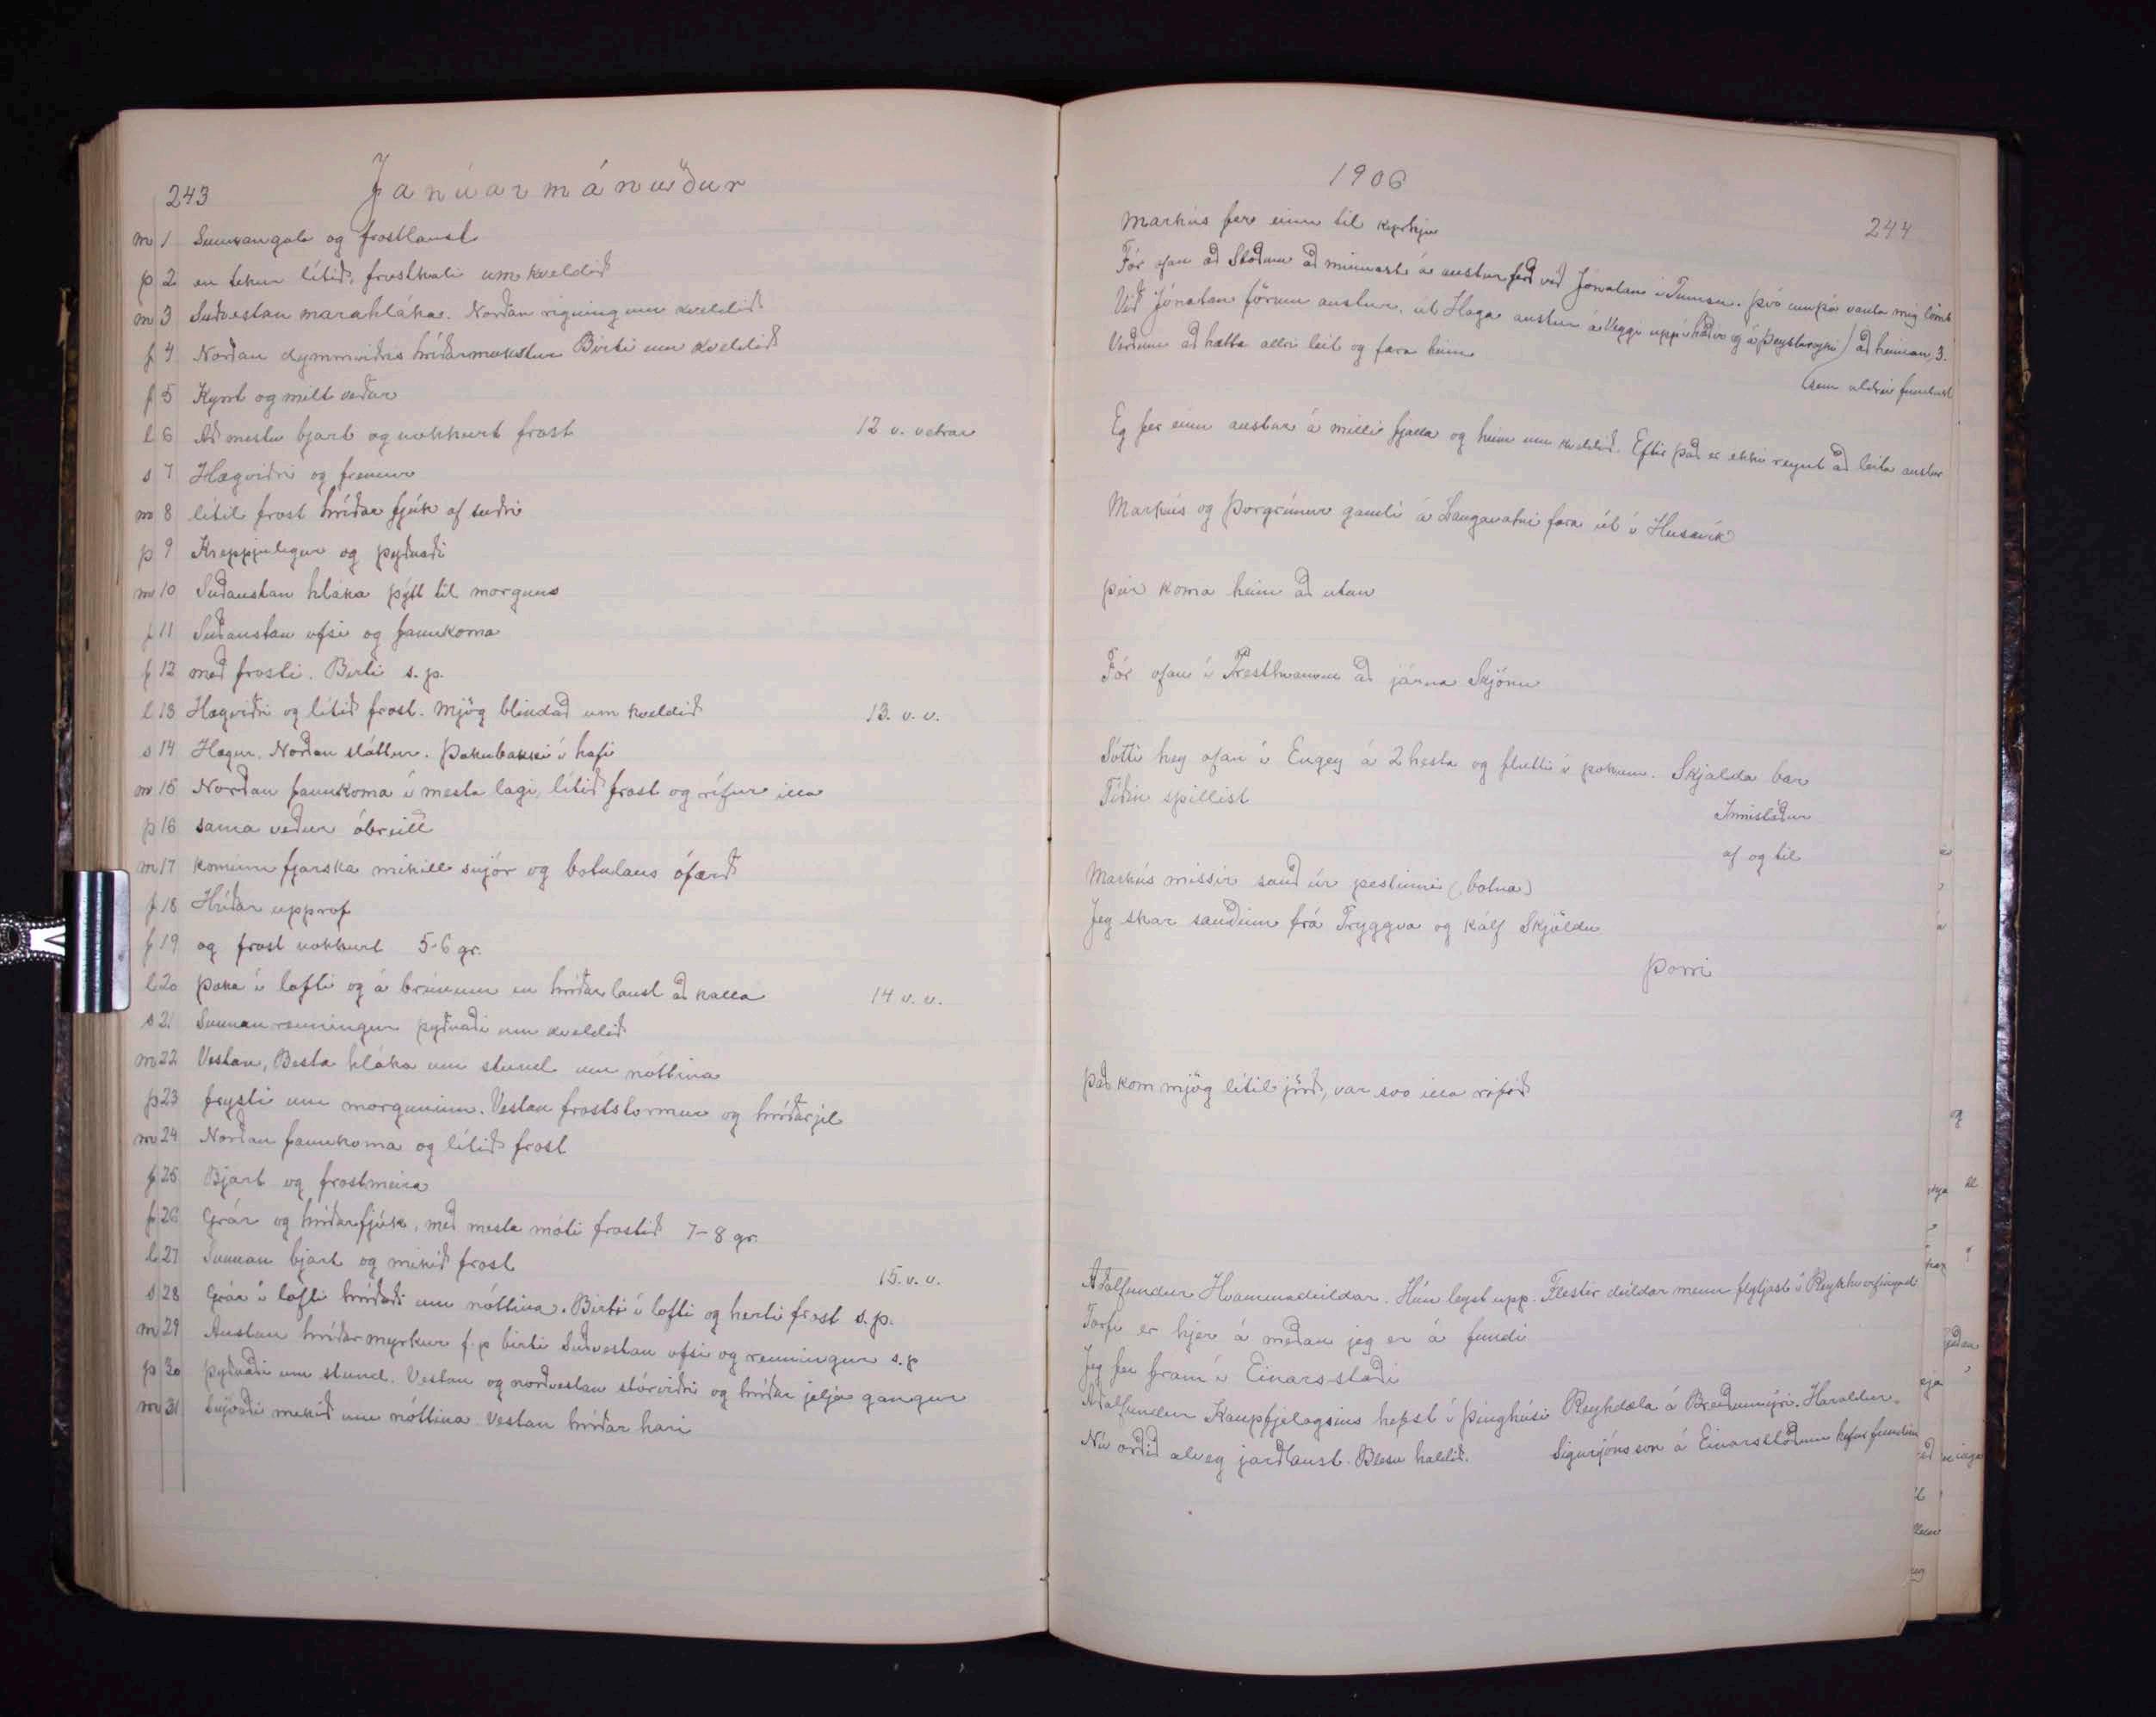 243 Janúarmánuður
m 1 Sunnangola og frostlaust
þ 2 en tekur lítið, frostkali um kveldið
m 3 Suðvestan marahláka. Norðan rigning um kveldið
f 4 Norðan dymmviðris hríðarmokstur Birti um kveldið
f 5 Kyrt og milt veður
l 6 Að mestu bjart og nokkurt frost 12 v. vetrar
s 7 Hægviðri og fremur
m 8 lítil frost hríðar fjúk af suðri
þ 9 Kreppjulegur og þyðnaði
m 10 Suðaustan hláka þýtt til morguns
f 11 Suðaustan ofsi og fannkoma
f 12 með frosti. Birti s.p.
l 13 Hægviðri og lítið frost. Mjög blindað um kveldið 13. v. v.
s 14 Hægur. Norðan sláttur. Þokubakki í hafi
m 15 Norðan fannkoma í mesta lagi, lítið frost og rífur illa
þ 16 sama veður óbreitt
m 17 kominn fjarska mikill snjór og botnlaus ófærð
f 18 Hríðar upprof
f 19 og frost nokkurt 5-6 gr.
l 20 Þoka í lofti og á brúnum en hríðarlaust að kalla 14 v. v.
s 21 Sunnan renningur þyðnaði um kveldið
m 22 Vestan, Besta hláka um stund um nóttina
þ 23 frysti um morguninn. Vestan froststormur og hríðarjel
m 24 Norðan fannkoma og lítið frost
f 25 Bjart og frostmeira
f 26 Grár og hríðarfjúk, með mesta móti frostið 7-8 gr.
l 27 Sunnan bjart og mikið frost 15. v. v.
s 28 Grár í lofti hríðaði um nóttina. Birti í lofti og herti frost s.p.
m 29 Austan hríðarmyrkur f.p birti Suðvestan ofsi og renningur s.p
þ 30 þyðnaði um stund. Vestan og norðvestan stórviðri og hríðar jelja gangur
m 31 Snjóaði mikið um nóttina Vestan hríðar hari
1906
244
Markús fer einn til kyrkju
Fór ofan að Stöðum að minnast á austurferð við Jónatan í Tumsu. því enn þá vanta mig lömb
Við Jónatan förum austur, út Haga austur á Veggi uppí háður og á Þeystareyki) að heiman, 3.
Verðum að hætta allri leit og fara heim
(sem aldrei fundust
Eg fer einn austur á milli fjalla og heim um kveldið. Eftir það er ekki reynt að leita austur
Markús og Þorgrímur gamli á Langavatni fara út í Húsavík
þeir koma heim að utan
Fór ofan í Presthvamm að járna Skjónu
Sótti hey ofan í Engey á 2 hesta og flutti í pokum. Skjalda bar
Tíðin spillist
Innistöður
af og til
Markús missir sauð úr pestinni (botna)
Jeg skar sauðinn frá Tryggva og kálf Skjöldu
Þorri
það kom mjög lítil jörð, var svo illa rifið
Aðalfundur Hvammadeildar. Hún leyst upp. Flestir deildar menn flytjast í Reykhverfingad
Torfi er hjer á meðan jeg er á fundi
Jeg fer fram í Einarsstaði
Aðalfundur Kaupfjelagsins hefst í þinghúsi Reykdæla á Breiðumýri. Haraldur
Nú orðið alveg jarðlaust. Blesu haldið. Sigurjónsson á Einarsstöðum hefur fundinn